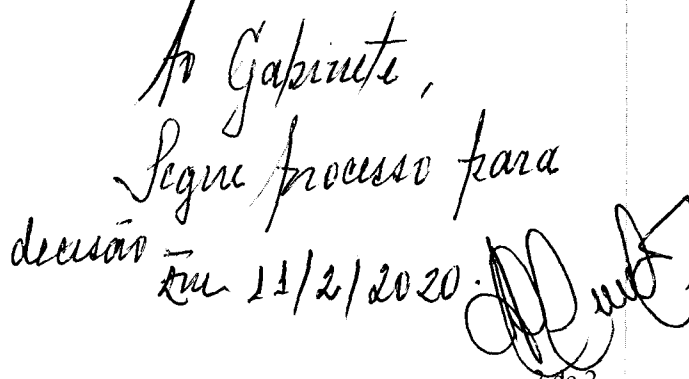 Ao Gabinete,
Segue processo para
decisão
Em 11/2/2020.